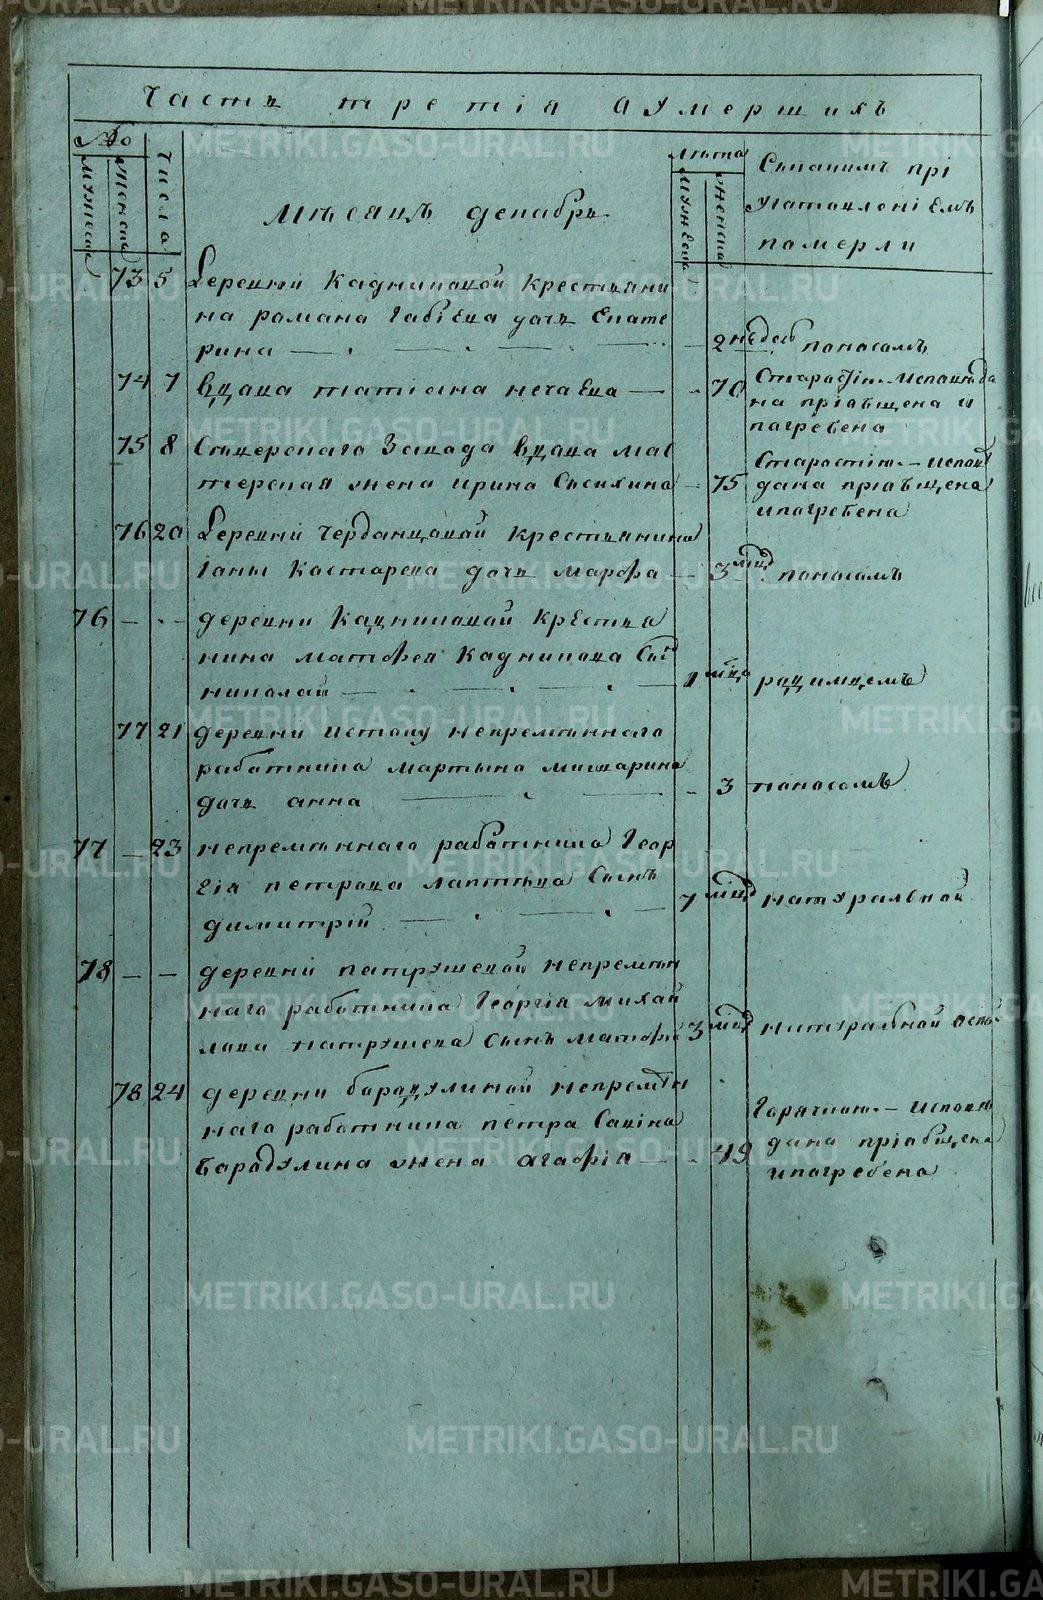 Часть третія о умершихъ
№
мужеска
женска
числа
Мѣсяцъ декабрь
лѣта
мужеска
женска
Скакимъ прі
уготовленіемъ
померли
73 5 Деревни Кадниковой крестьяни
на романа Бабіева дочь Екате
рина — 2 недел поносомъ
74 7 вдова татіана нечаева — 70 Старостію. — исповеда
на пріобщена и
погребена
75 8 Сысерскаго Завода вдова мас
терская жена ирина Сысихина — 75 Старостію. — испов
дана пріобщена
ипогребена
76 20 Деревни Черданцовой крестьянина
Іоны Костарева дочь марфа — 3 мцд. поносомъ
76 — - — деревни Кадниковой крестья
нина матфея Кадникова Сы
николай — 1 мца родимцемъ
77 21 деревни истоку непремѣннаго
работника мартына мишарина
дочь анна — 3 поносомъ
77 — 23 непремѣннаго работника Геор
гія петрова лаптева Сынъ
димитрій — 7 мцд натуральной
78 — — деревни патрушевой непремѣн
наго работника Георгія михаи
лова патрушева Сынъ матфе 3 мцд натуралной оспы
78 24 деревни бородулиной непремѣн
наго работника петра Савина
бородулина жена агафія — 49 Горячкою. — испов
дана пріобщена
ипогребена
METRIKI.GASO-URAL.RU